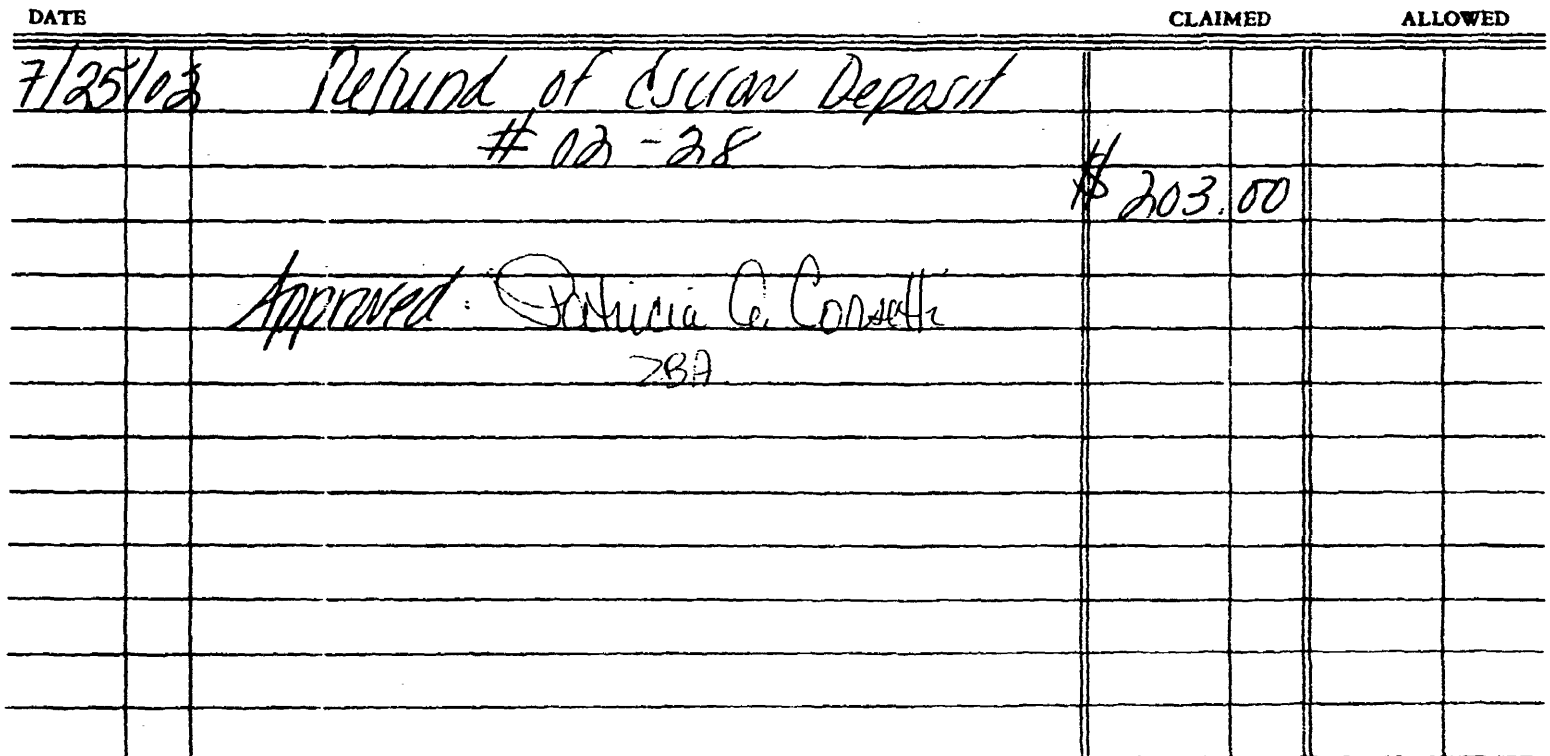 DATE CLAIMED ALLOWED
7/25/02 Refund of Escrow Deposit
# 02-28
$ 203.00
Approved: Patricia A. Corsetti
ZBA